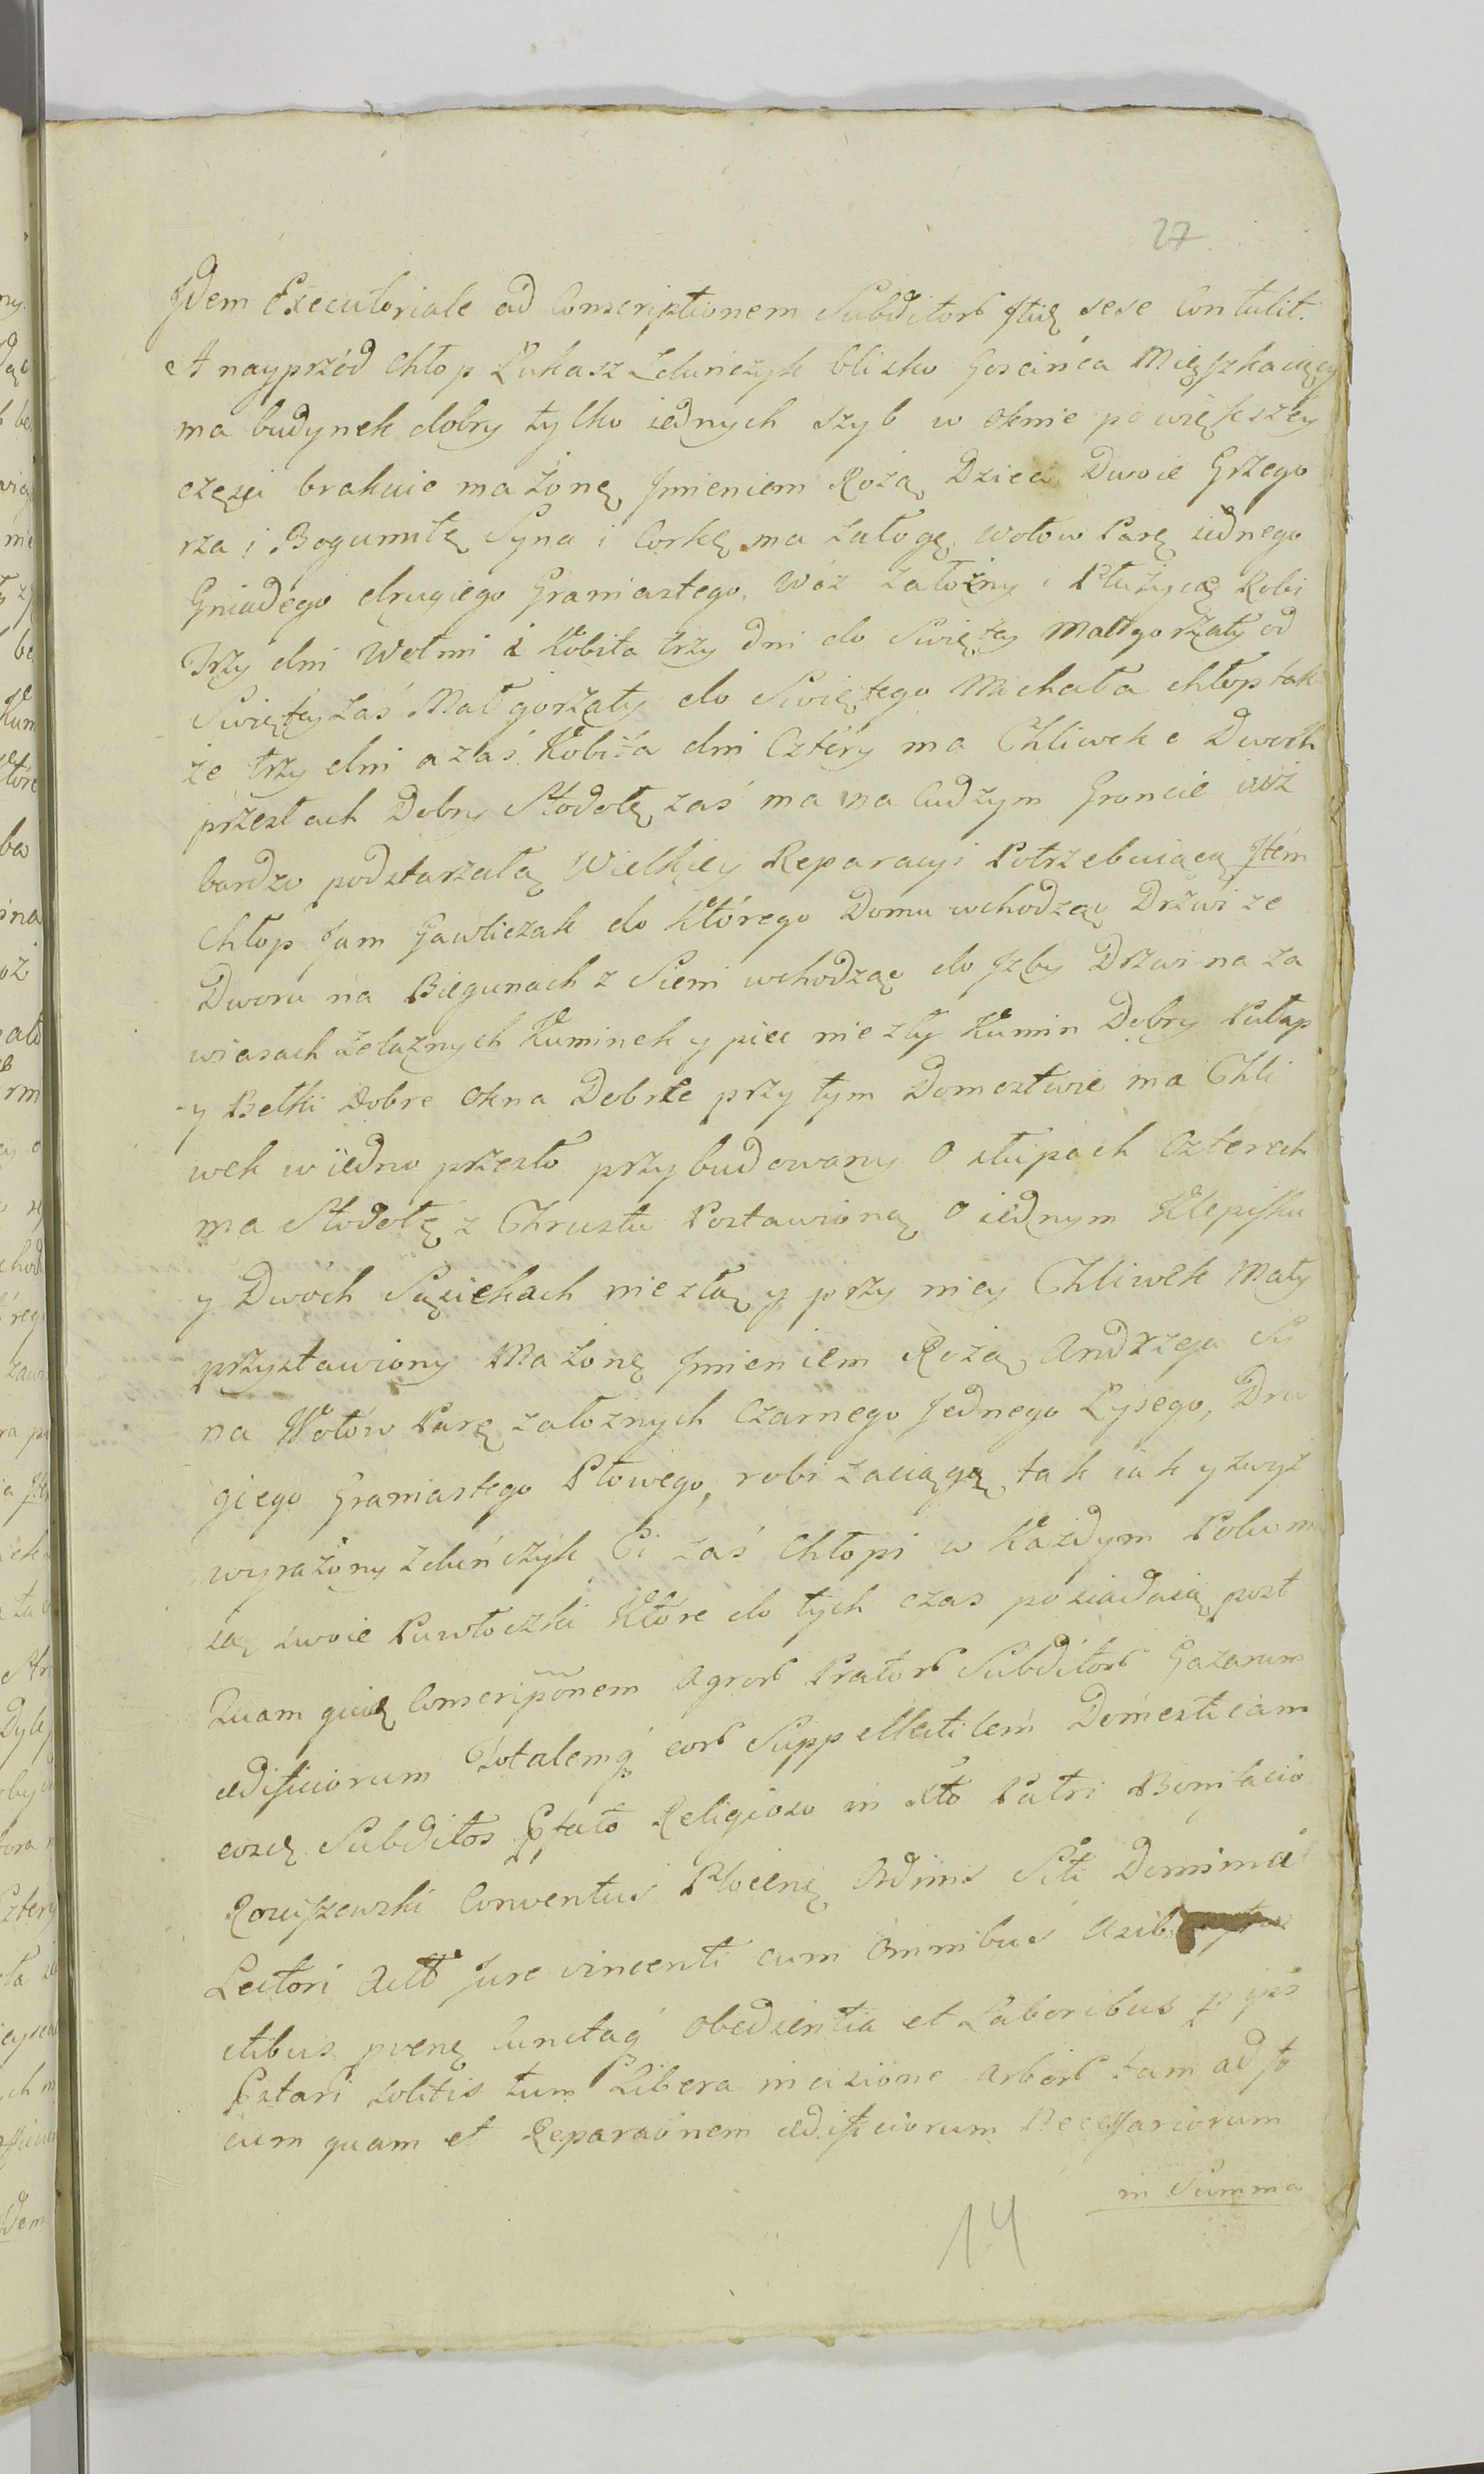 27
Jdem Executoriale ad Conscriptionem Subditorb Jtiď sese Contulit.
A nayprzód Chłop Łukasz Zduńczyk blisko Gościńca Mięszkaiący
ma budynek dobry tylko iednych szyb w oknie po większey
częsci brakuie ma żonę Jmieniem Rożą Dzieci Dwoie Grzego
rza i Bogumiłę Syna i Corkę ma załogę wołow Parę iednego
Gniadego drugiego Graniastego, Wóz załóżny i Płużycę Robi
Trzy dni Wołmi i Kobita trzy dni do Swiętey Małgorzaty od
Swiętey zaś Małgorzaty do Swiętego Michała chłop tak
że trzy dni a zaś Kobita dni Cztéry ma Chliwek o Dwóch
przesłach Dobry Stodołę zaś ma na Cudzym Groncie iuż
bardzo podstarzałą Wielkiey Reparacyi Potrzebuiącą Jtém
Chłop Jam Gawliczak do Którego Domu wchodząc Drzwi ze
Dworu na Biegunach z Sieni wchodząc do Jzby Drzwi na za
wiasach żelaznych Kuminek y piec nie zły Kumin Dobry Pułap
y Belki dobre Okna Dobrze przy tym Domostwie ma Chli
wek w iedno przesło przybudowany o słupach Czterech
ma Stodołę z Chrustu Postawioną o iednym Klepisku
y Dwóch Sąsiekach niezłą y przy niey Chliwek Mały
przystawiony Ma żonę Jmieniem Rożą, Andrzeja Sy
na Wołów Parę założnych Czarnego Jednego Łysego, Dru
giego Graniastego Płowego, robi zaciągę tak iak y zwyż
wyrażony Zduńczyk Ci zaś Chłopi w Każdym Polu m
ią swoie Pawłoczki Które do tych czas posiadaią post
Quam quidę Conscripõnem Agrorb Pratorb Subditorb Gazarum
ædificiorum Totalemq́ eorb Suppellectilem Domesticam
Subditos Religioso in Xto Patri Bonifacio
Rosciszewski Conventus Płocenę Ordinis Sti Dominici
Lectori Jure vincenti cum Omnibus
ctibus cunctaq́ obedientia et Laboribus
solitis tum Libera incisione Arborb tam ad fo
cum quam et Reparaõnem ædificiorum Necessariorum
in Summa
14